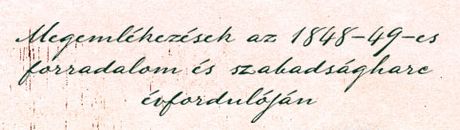 Megemlékezések az 1848-49-es
forradalom és szabadságharc
évfordulóján